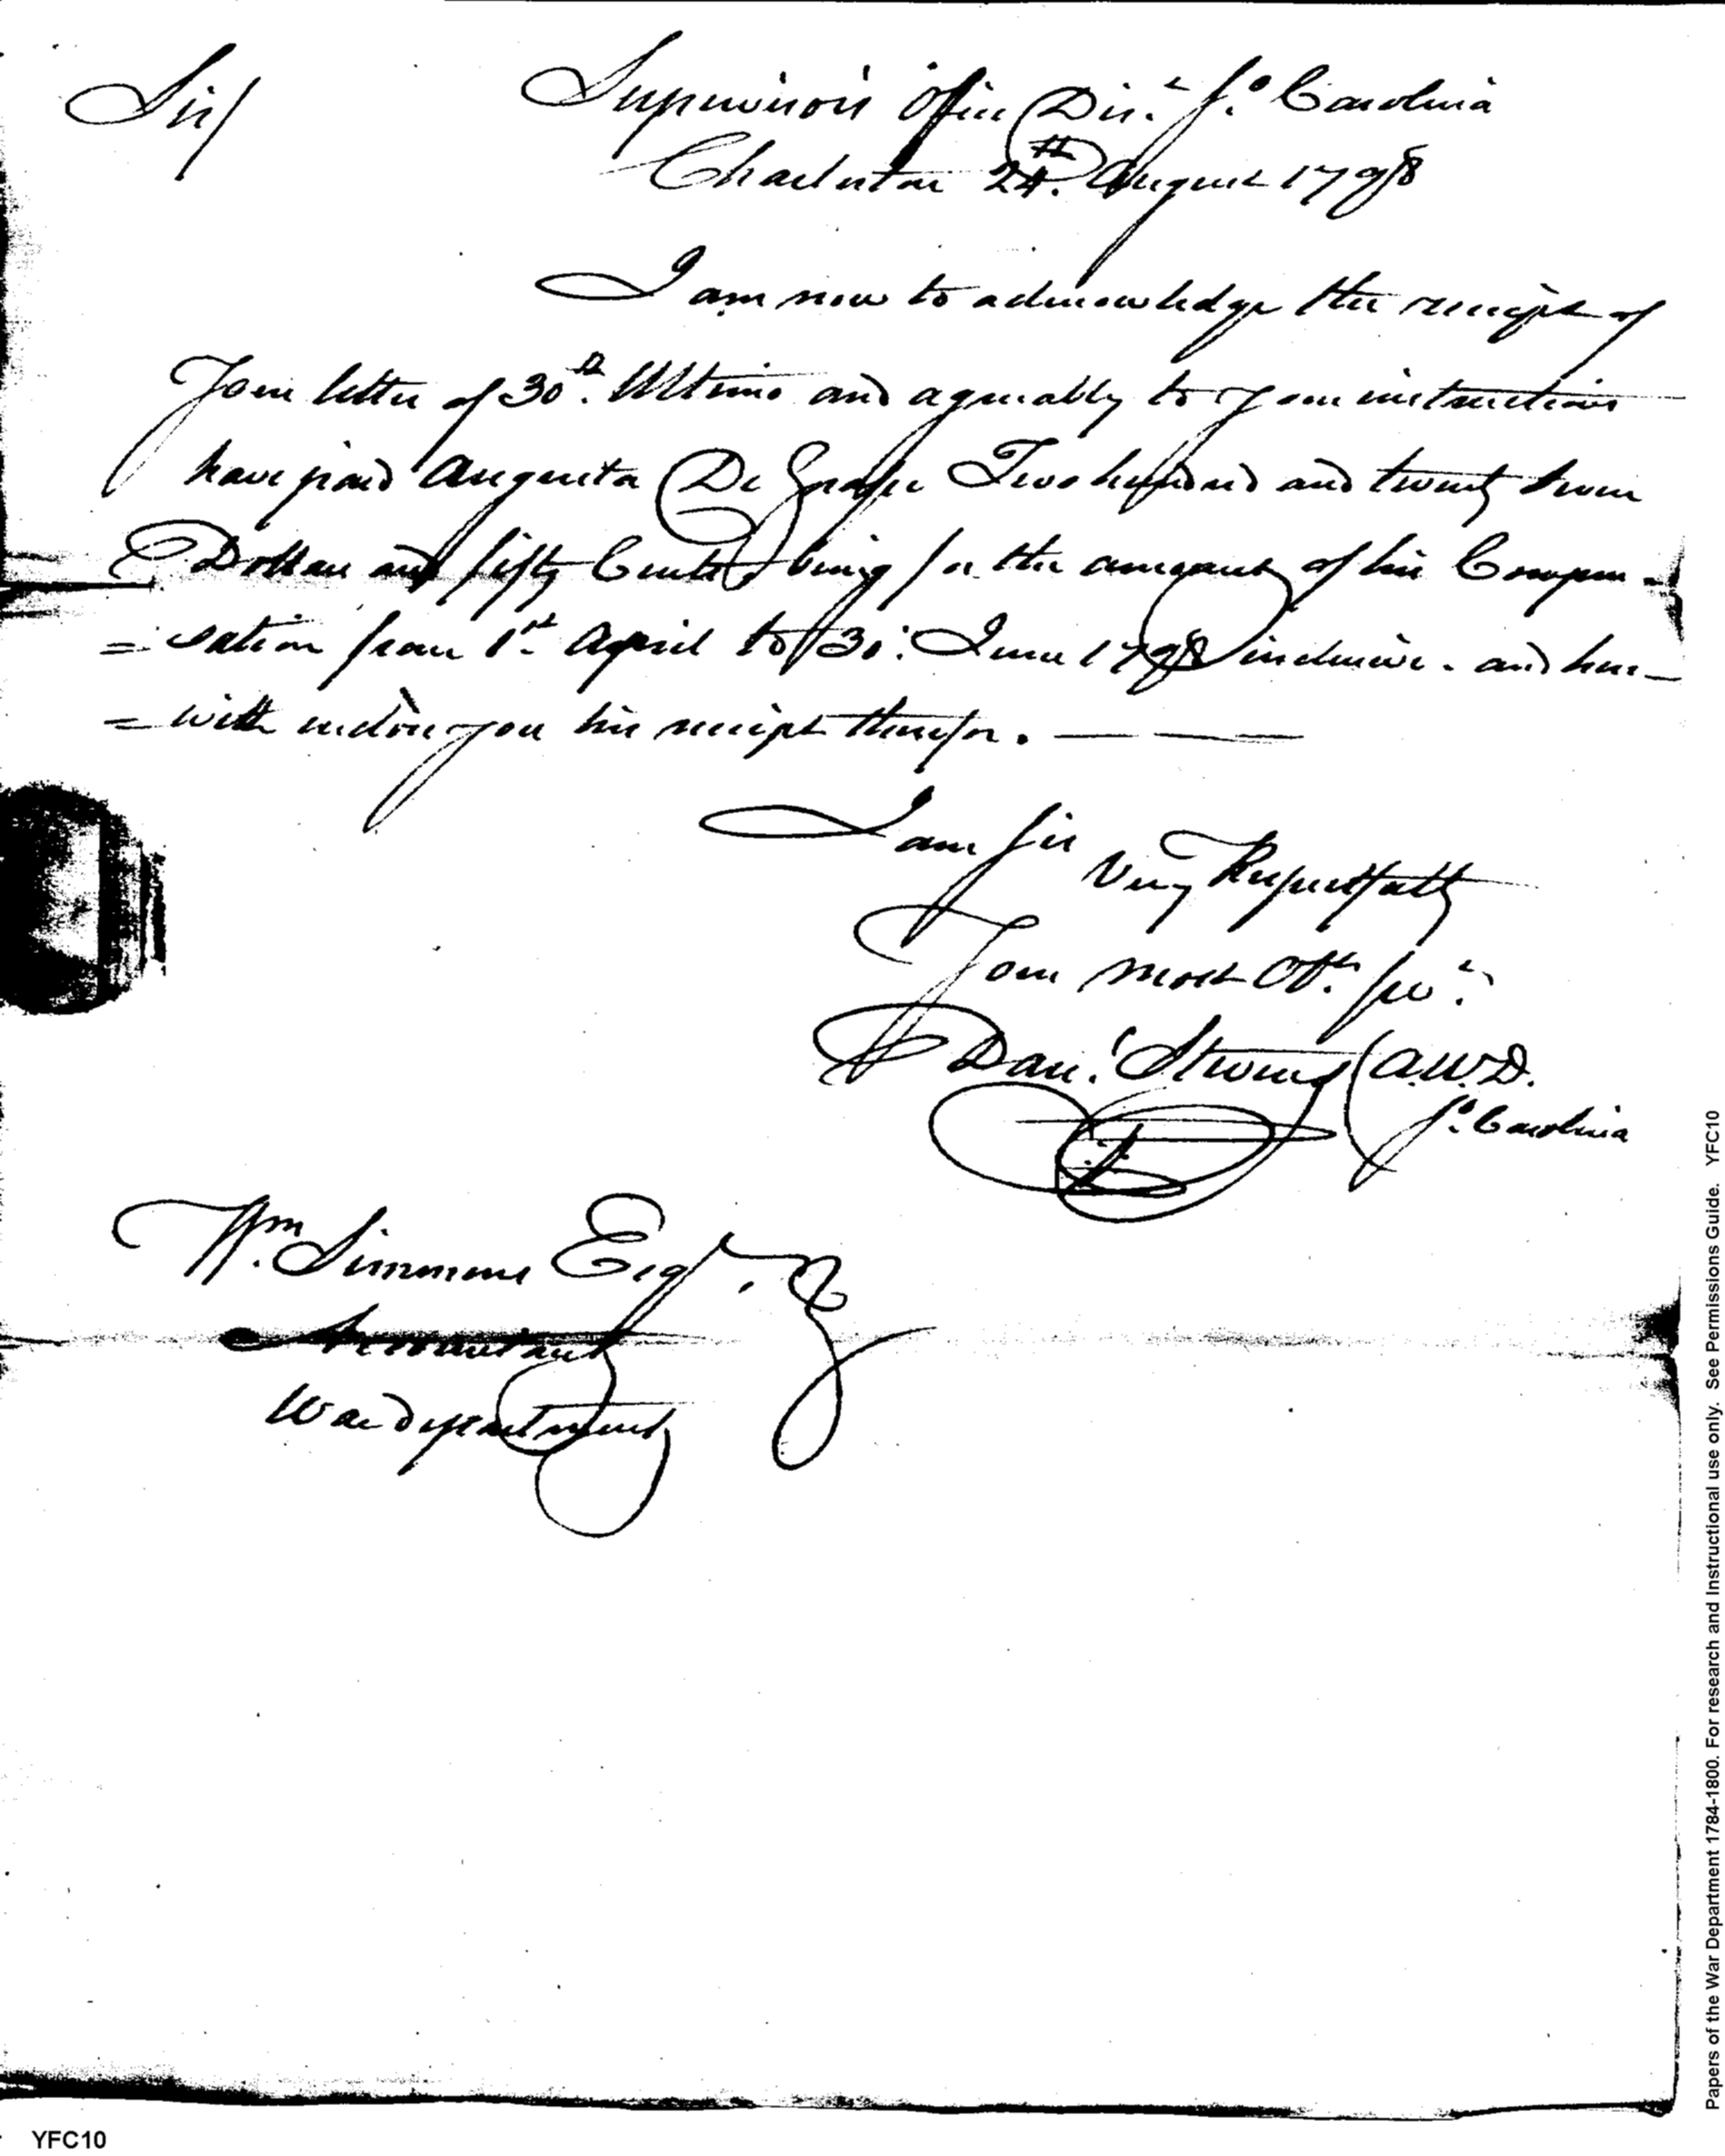 Sir/
Supervisor's Office Dis.t So. Carolina
Charleston 24th. August 1798
I am now to acknowledge the receipt of
Your letter of 30th. Ultimo and agreeably to your instructions
have paid Augusta De Grasse Two hundred and twenty seven
Dollars and fifty Cents being for the amount of his Compen-
=sation from 1st. April to 30: June 1798 inclusive. and here-
=with inclose you his receipt therefor.
I am Sir
Very Respectfully
Your most Obt. Sert.
Danl. Stevens A.W.D.
So. Carolina
Wm. Simmons Esqr.
Accountant
War department
Papers of the War Department 1784-1800. For research and Instructional use only. See Permissions Guide. YFC10
YFC10